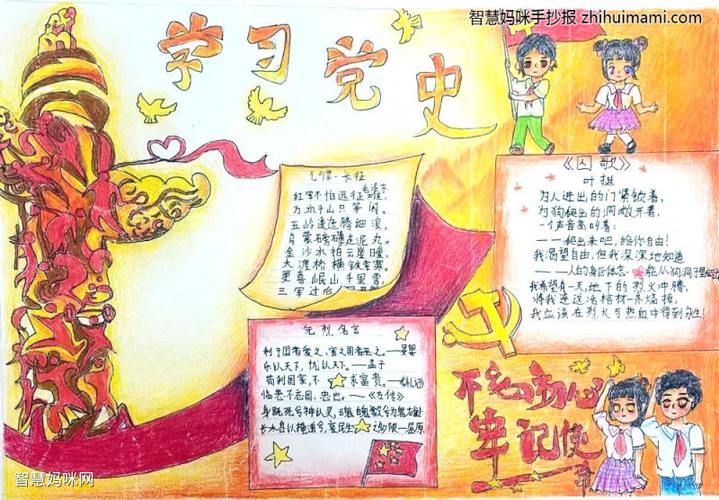 智慧妈咪手抄报 zhihuimami.com
学习党史
七律·长征
毛泽东
红军不怕远征难,
万水千山只等闲。
五岭逶迤腾细浪,
乌蒙磅礴走泥丸。
金沙水拍云崖暖,
大渡桥横铁索寒。
更喜岷山千里雪,
三军过后
《囚歌》
叶挺
为人进出的门紧锁着,
为狗爬出的洞敞开着,
一个声音高叫着:
——爬出来吧,给你自由!
我渴望自由,但我深深地知道
——人的身躯怎 能从狗洞子里
我希望有一天,地下的烈火冲腾,
将我连这活棺材一齐烧掉,
我应该在烈火与热血中得到永生!
先烈名言
利于国者爱之,害于国者恶之——晏婴
乐以天下,忧以天下。——孟子
苟利国家,不求富贵。——
临患不忘国,忠也。——《左传》
身既死兮神以灵,魂魄毅兮为鬼雄
长太息以掩涕兮,哀民生之 ——屈原
不忘初心
牢记使
智慧妈咪网